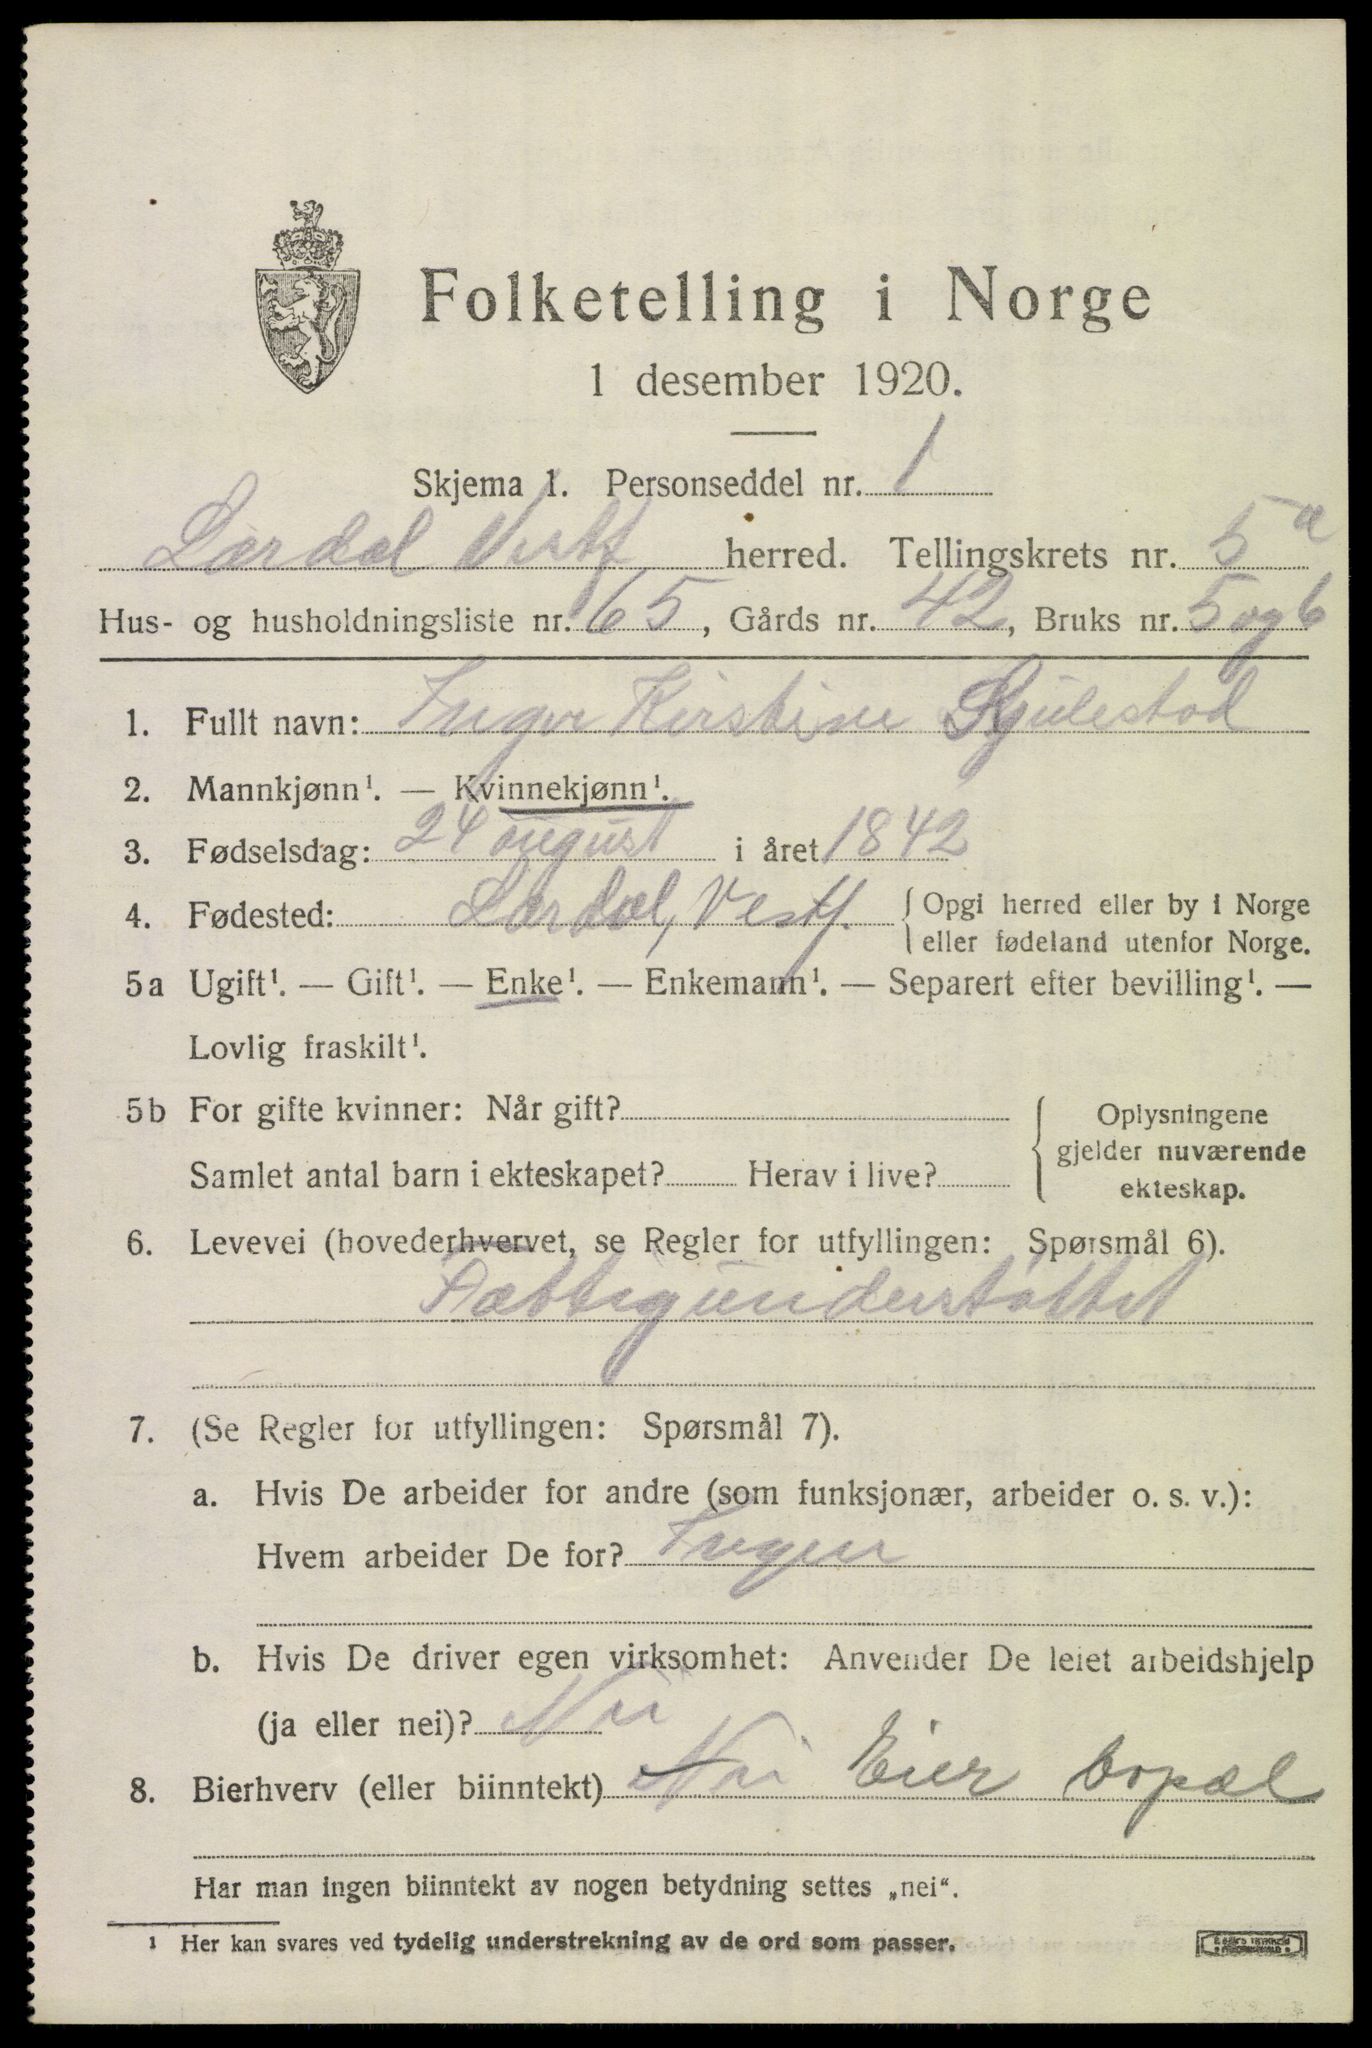 Folketelling i Norge
1 desember 1920.
Skjema 1. Personseddel nr. 1
Lardal Vestf. herred. Tellingskrets nr. 5 a
Hus- og husholdningsliste nr. 65, Gårds nr. 42, Bruks nr. 5 og 6
1. Fullt navn: Inger Kirstine Gjulestad
2. Mannkjønn¹. — Kvinnekjønn¹.
3. Fødselsdag: 24 august i året 1842
4. Fødested: Lardal, Vestf. { Opgi herred eller by i Norge
eller fødeland utenfor Norge.
5a Ugift¹. — Gift¹. — Enke¹. — Enkemann¹. — Separert efter bevilling¹. —
Lovlig fraskilt¹.
5b For gifte kvinner: Når gift? { Oplysningene
gjelder nuværende
Samlet antal barn i ekteskapet? Herav i live?
ekteskap.
6. Levevei (hovederhvervet, se Regler for utfyllingen: Spørsmål 6).
Fattigunderstøttet
7. (Se Regler for utfyllingen: Spørsmål 7).
a. Hvis De arbeider for andre (som funksjonær, arbeider o. s. v.):
Hvem arbeider De for? Ingen
b. Hvis De driver egen virksomhet: Anvender De leiet arbeidshjelp
(ja eller nei)? Nei
8. Bierhverv (eller biinntekt) Nei Eier bopæl
Har man ingen biinntekt av nogen betydning settes „nei“.
¹ Her kan svares ved tydelig understrekning av de ord som passer.